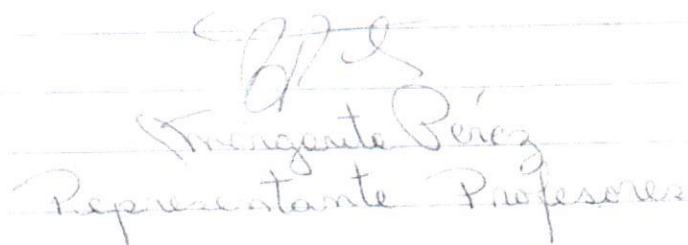 Margarita Pérez
Representante Profesores